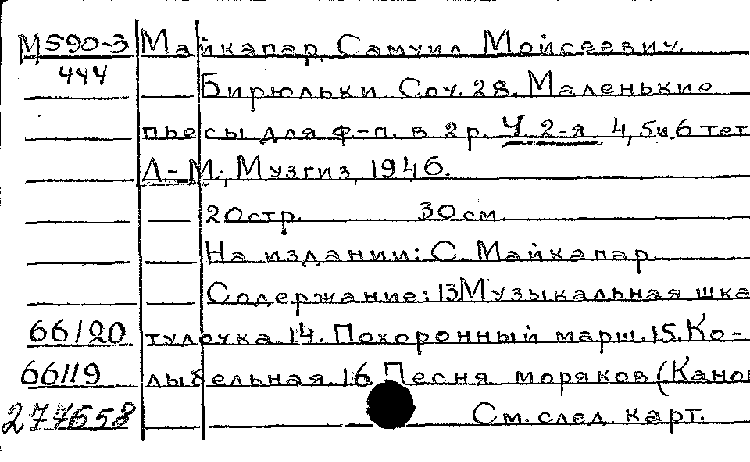 М590-3 Майкапар, Самуил Мойсеевич.
444
Бирюльки. Соч. 28. Маленькие
пьесы для ф-п. в 2 р. Ч. 2-я. 4, 5 и 6 тет
Л-М., Музгиз, 1946.
20 стр. 30 см.
На издании: С. Майкапар
Содержание: 13 Музыкальная шка
66120 тулочка. 14. Похоронный марш. 15. Ко-
66119 лыбельная. 16 Песня моряков (Канон
274658 См. след. карт.